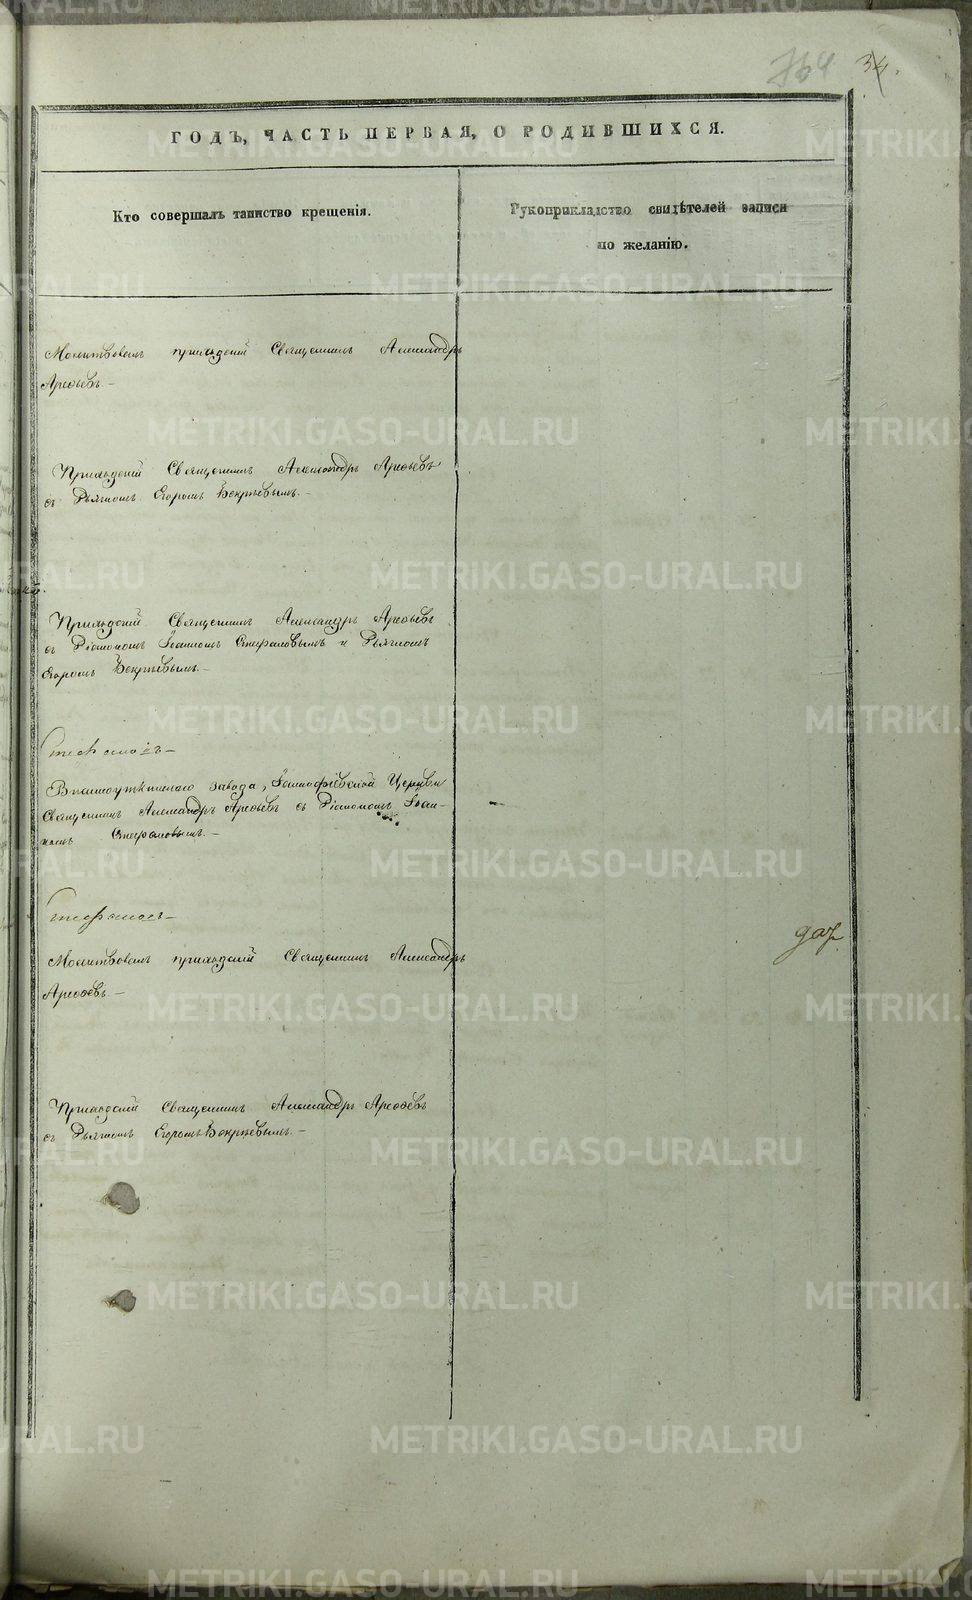 764 34.
ГОДЪ, ЧАСТЬ ПЕРВАЯ, О РОДИВШИХСЯ.
Кто совершалъ таинство крещенія.
Рукоприкладство свидѣтелей записи
по желанію.
Молитвовалъ приходскій Священникъ Александръ
Арефьевъ
Приходскій Священникъ Александръ Арефьевъ
съ Дьячкомъ Егоромъ
Приходскій Священникъ Александръ Арефьевъ
съ Діакономъ Іоанномъ Стефановымъ и Дьячкомъ
Егоромъ
завода, Церкви
Священникъ Александръ Арефьевъ съ Діакономъ Іоан-
номъ Стефановымъ.
Молитвовалъ приходскій Священникъ Александръ
Арефьевъ
Приходскій Священникъ Александръ Арефьевъ
съ Дьячкомъ Егоромъ
METRIKI.GASO-URAL.RU